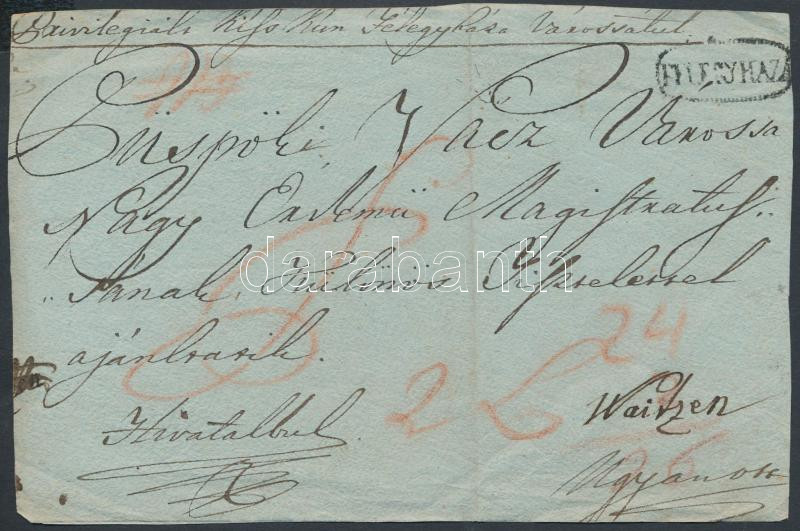 Privilegiált Kiss Kun Félegyháza Várossátul
FELEGYHAZ
Püspöki Vácz Várossa
Nagy Erdemü Magistratus„
„sának, Különös Tisztelettel
ajánltasik.
darabanth
24
2
Hivatalbul
Waitzen
Ugyanott